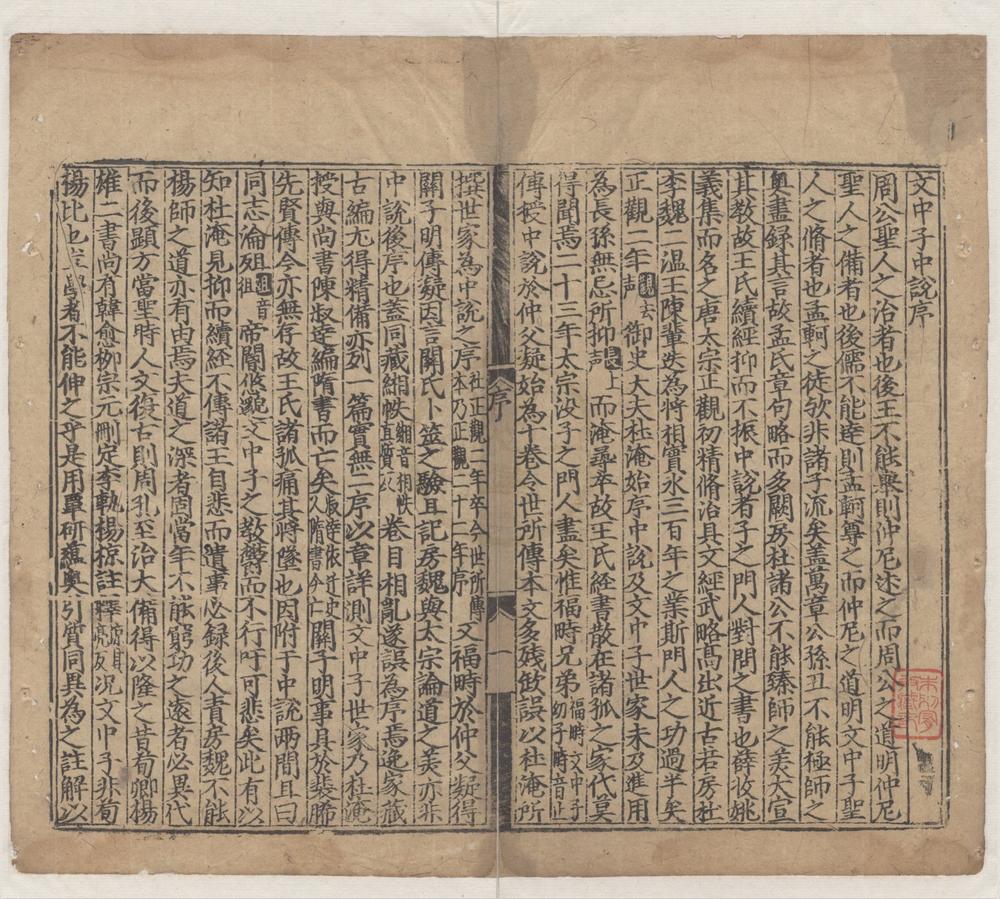 文中子中說序
周公聖人之治者也後王不能舉則仲尼述之而周公之道明仲尼
聖人之備者也後儒不能達則孟軻尊之而仲尼之道明文中子聖
人之脩者也孟軻之徒欤非諸子流矣盖萬章公孫丑不能極師之
奥盡録其言故孟氏章句略而多闕房杜諸公不能臻師之美大宣
其教故王氏續經抑而不振中說者子之門人對問之書也薛收姚
義集而名之唐太宗正觀初精脩治具文經武略髙出近古若房杜
李魏二温王陳軰迭為將相實永三百年之業斯門人之功過半矣
正觀二年觀去声御史大夫杜淹始序中說及文中子世家未及進用
為長孫無忌所抑長上声而淹尋卒故王氏經書散在諸孤之家代莫
得聞焉二十三年太宗没子之門人盡矣惟福畤兄弟福畤文中子幼子畤音止
傳授中說於仲父凝始為十卷今世所傳本文多残缺誤以杜淹所
序 一
撰世家為中說之序杜正觀二年卒今世所傳本乃正觀二十二年序又福畤於仲父凝得
關子明傳凝因言關氏卜筮之驗且記房魏與太宗論道之美亦非
中說後序也盖同藏緗帙緗音相帙直質以卷目相亂遂誤為序焉逆家藏
古編尤得精備亦列一篇實無二序以章詳測文中子世家乃杜淹
授與尚書陳叔達編隋書而亡矣關子明事具於裴晞
先賢傳今亦無存故王氏諸孤痛其將墜也因附于中說兩間且曰
同志淪殂殂音徂帝閽悠邈文中子之教鬱而不行吁可悲矣此有以
知杜淹見抑而續經不傳諸王自悲而遺事必録後人責房魏不能
楊師之道亦有由焉夫道之深者固當年不能窮功之遠者必異代
而後顕方當聖時人文復古則周孔至治大備得以隆之昔荀卿楊
雄二書尚有韓愈柳宗元刪定李軌楊倞註釋况文中子非荀
楊比也豈學者不能伸之乎是用覃研藴奥引質同異為之註解以